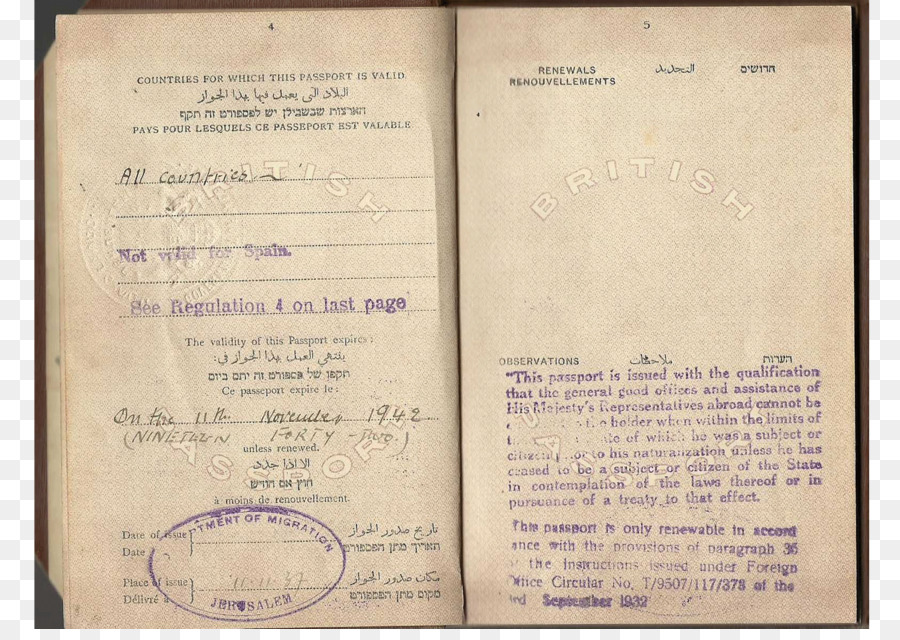 4
COUNTRIES FOR WHICH THIS PASSPORT IS VALID.
البلاد التى يعمل فيها بهذا الجواز
הארצות שבשבילן יש לפספורט זה תקף
PAYS POUR LESQUELS CE PASSEPORT EST VALABLE
All countries
BRITISH
Not valid for Spain.
See Regulation 4 on last page
The validity of this Passport expires:
ينتهى العمل بهذا الجواز فى:
תקפו של פספורט זה יתם ביום
Ce passeport expire le:
On the 11th November 1942
(NINETEEN FORTY TWO.)
unless renewed.
الا اذا جدد
חוץ אם חודש
à moins de renouvellement.
PASSPORT
Date of issue
Date
تاريخ صدور الجواز
תאריך מתן הפספורט
Place of issue
Délivré à
مكان صدور الجواز
מקום מתן הפספורט
DEPARTMENT OF MIGRATION
11.11.37
JERUSALEM
5
RENEWALS التجديد חדושים
RENOUVELLEMENTS
BRITISH
OBSERVATIONS ملاحظات הערות
"This passport is issued with the qualification
that the general good offices and assistance of
His Majesty's Representatives abroad cannot be
the holder when within the limits of
the of which he was a subject or
citizen prior to his naturalization unless he has
ceased to be a subject or citizen of the State
in contemplation of the laws thereof or in
pursuance of a treaty to that effect.
PASSPORT
This passport is only renewable in accord
ance with the provisions of paragraph 36
the instructions issued under Foreign
Office Circular No. T/9507/117/378 of the
September 1932